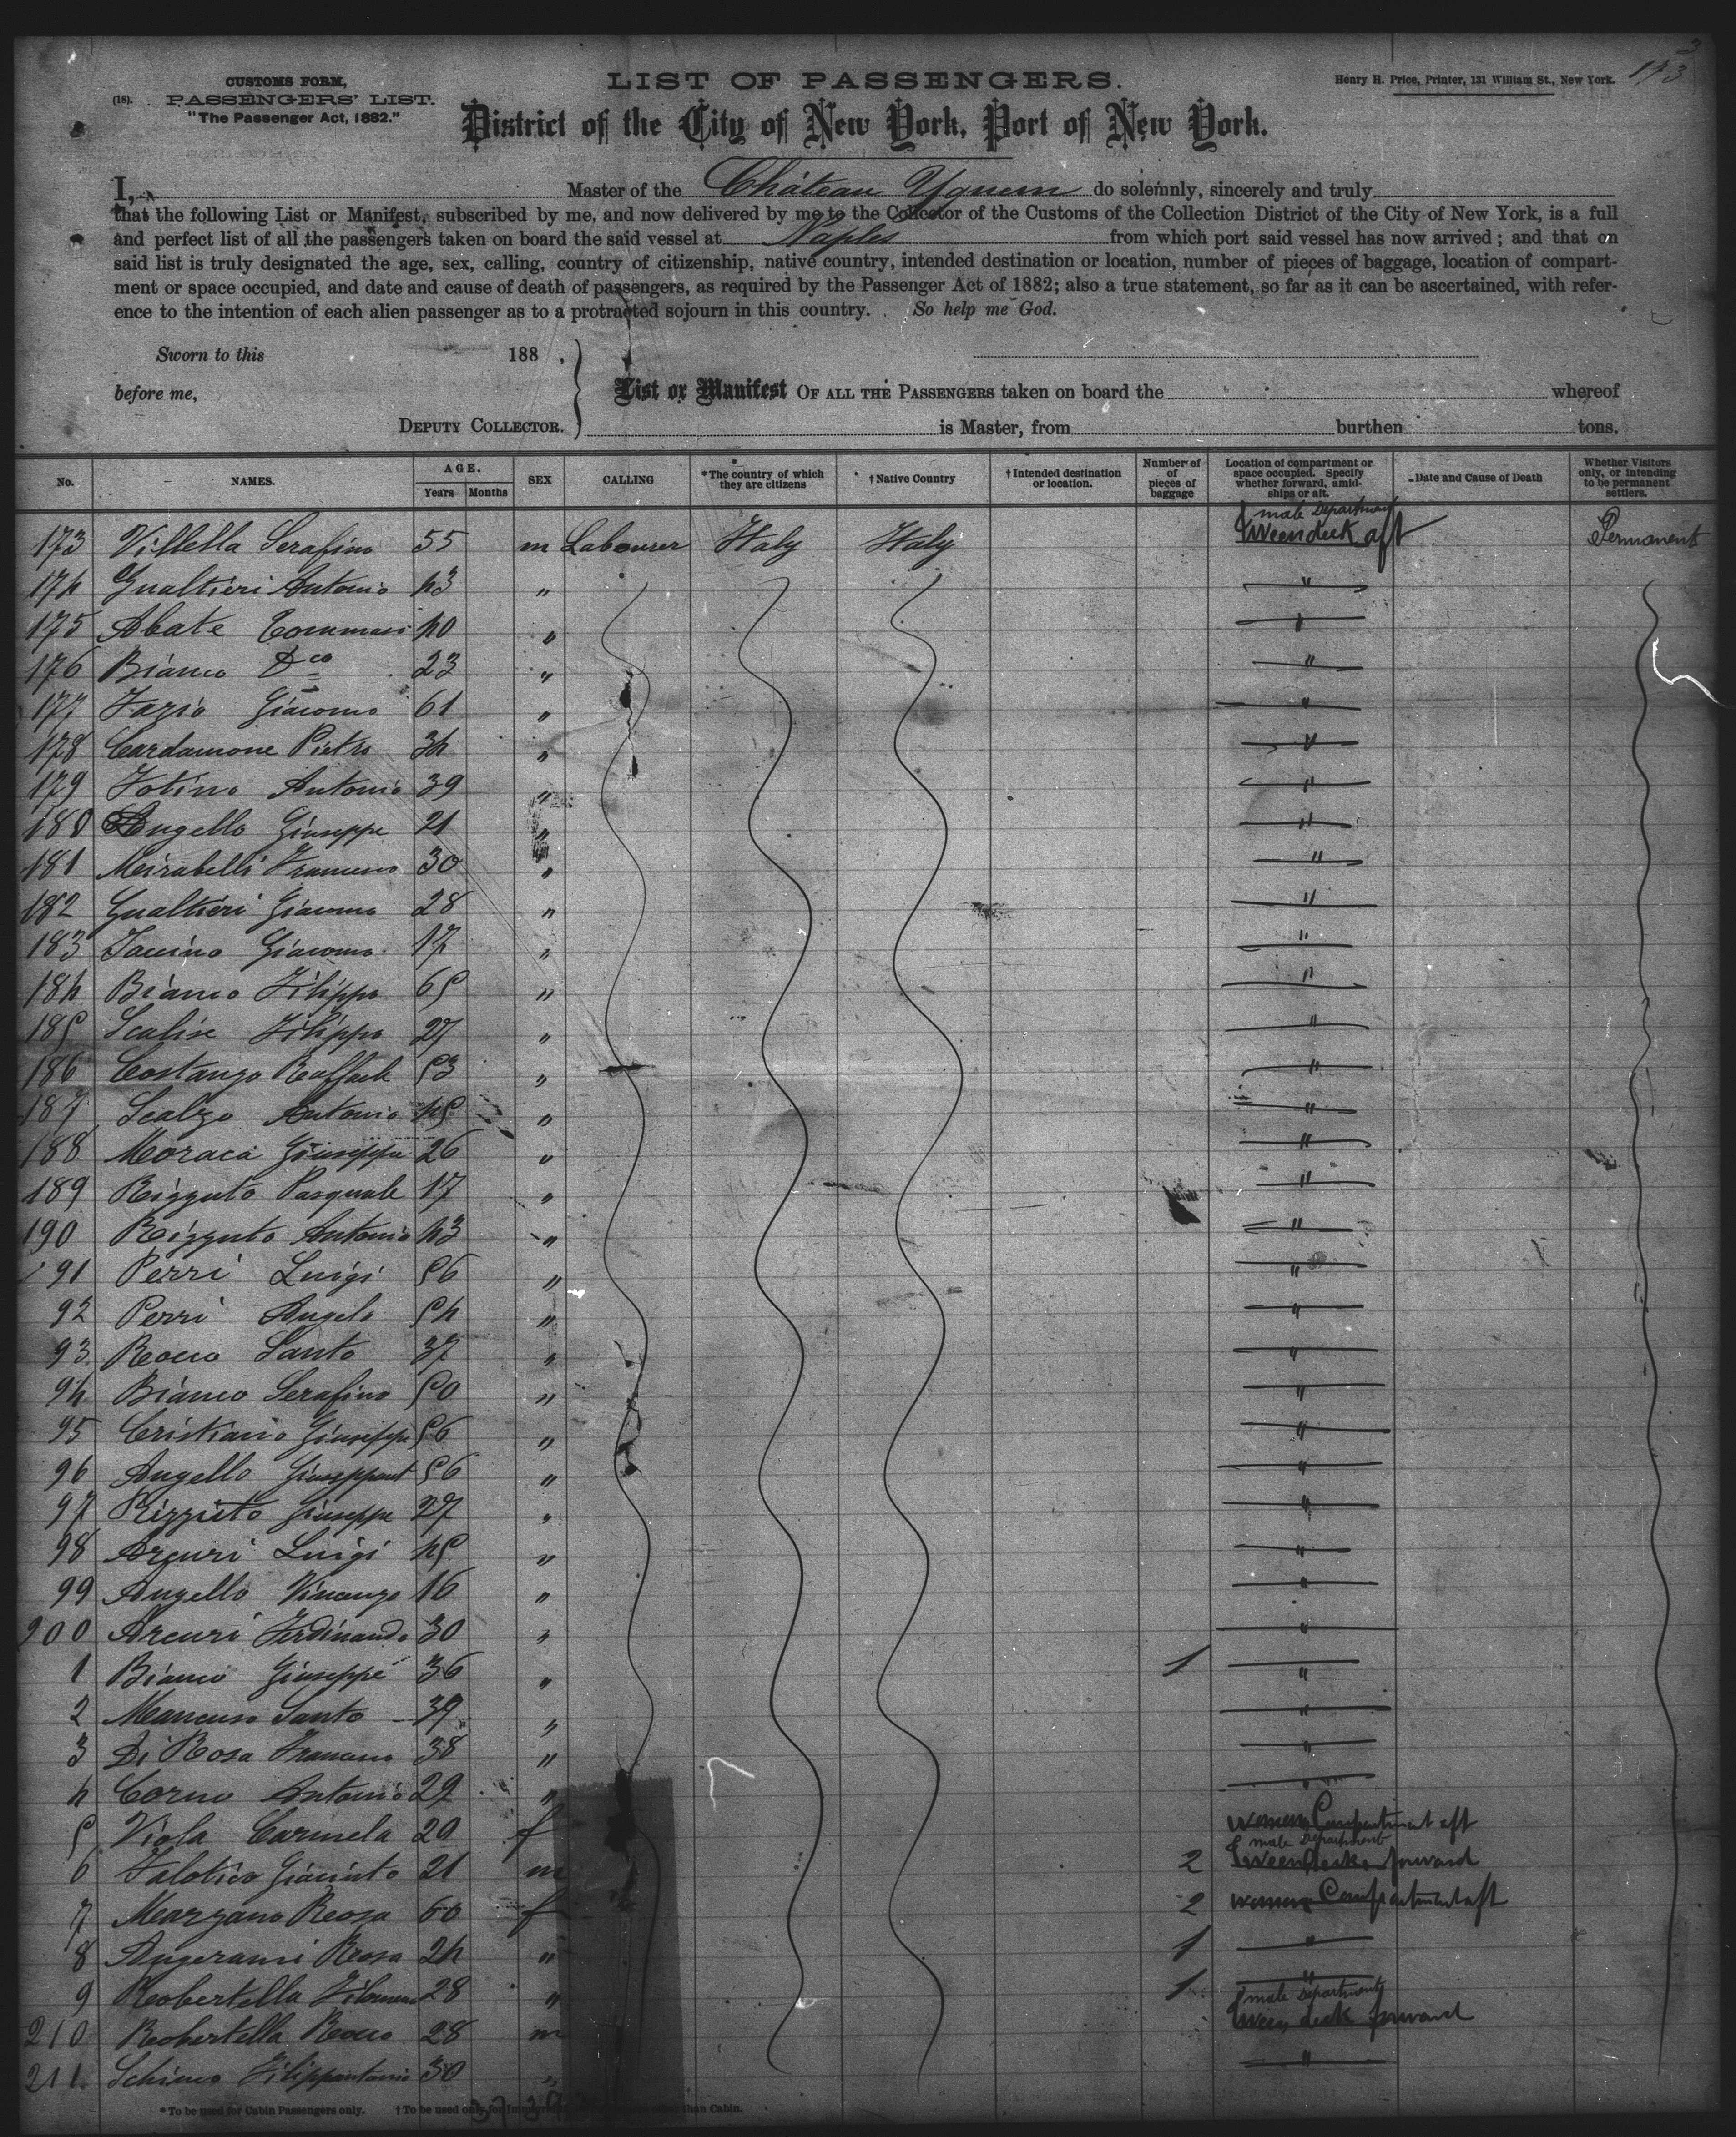 3
173
CUSTOMS FORM,
(18). PASSENGERS' LIST.
"The Passenger Act, 1882."
LIST OF PASSENGERS.
Henry H. Price, Printer, 131 William St., New York.
District of the City of New York, Port of New York.
I, Master of the Château Yquem do solemnly, sincerely and truly
that the following List or Manifest, subscribed by me, and now delivered by me to the Collector of the Customs of the Collection District of the City of New York, is a full
and perfect list of all the passengers taken on board the said vessel at Naples from which port said vessel has now arrived; and that on
said list is truly designated the age, sex, calling, country of citizenship, native country, intended destination or location, number of pieces of baggage, location of compart-
ment or space occupied, and date and cause of death of passengers, as required by the Passenger Act of 1882; also a true statement, so far as it can be ascertained, with refer-
ence to the intention of each alien passenger as to a protracted sojourn in this country. So help me God.
Sworn to this 188 .
before me,
DEPUTY COLLECTOR.
List or Manifest OF ALL THE PASSENGERS taken on board the whereof
is Master, from burthen tons.
No. NAMES. AGE. Years Months SEX CALLING *The country of which they are citizens † Native Country † Intended destination or location. Number of of pieces of baggage Location of compartment or space occupied. Specify whether forward, amid-ships or aft. Date and Cause of Death Whether Visitors only, or intending to be permanent settlers.
173 Villella Serafino 55 m Labourer Italy Italy male Department tween deck aft Permanent
174 Gualtieri Antonio 43 " "
175 Abate Tommaso 40 " "
176 Bianco Dco 23 " "
177 Fazio Giacomo 61 " "
178 Cardamone Pietro 34 " "
179 Fotino Antonio 39 " "
180 Angello Giuseppe 21 " "
181 Mirabelli Francesco 30 " "
182 Gualtieri Giacomo 28 " "
183 Giacomo 17 " "
184 Bianco Filippo 65 " "
185 Scalise Filippo 27 " "
186 Costanzo Raffaele 53 " "
187 Scalzo Antonio 45 " "
188 Moraca Giuseppe 26 " "
189 Rizzuto Pasquale 17 " "
190 Rizzuto Antonio 43 " "
91 Perri Luigi 56 " "
92 Perri Angelo 54 " "
93 Rocco Santo 37 " "
94 Bianco Serafino 50 " "
95 Cristiano Giuseppe 56 " "
96 Angello 56 " "
97 Rizzuto Giuseppe 27 " "
98 Arcuri Luigi 45 " "
99 Angello Vincenzo 16 " "
200 Arcuri Ferdinando 30 " "
1 Bianco Giuseppe 36 " 1 "
2 Mancuso Santo 39 " "
3 Di Rosa Francesco 38 " "
4 Corno Antonio 29 " "
5 Viola Carmela 20 f women Compartment aft
6 Giacinto 21 m 2 male Department tween deck forward
7 Marzano Rosa 60 f 2 women Compartment aft
8 Angerami Rosa 24 " 1 "
9 Robertella Filomena 28 " 1 "
210 Robertella Rocco 28 m male Department tween deck forward
211. Schirco Filippantonio 30 " "
*To be used for Cabin Passengers only. † To be used only for than Cabin.